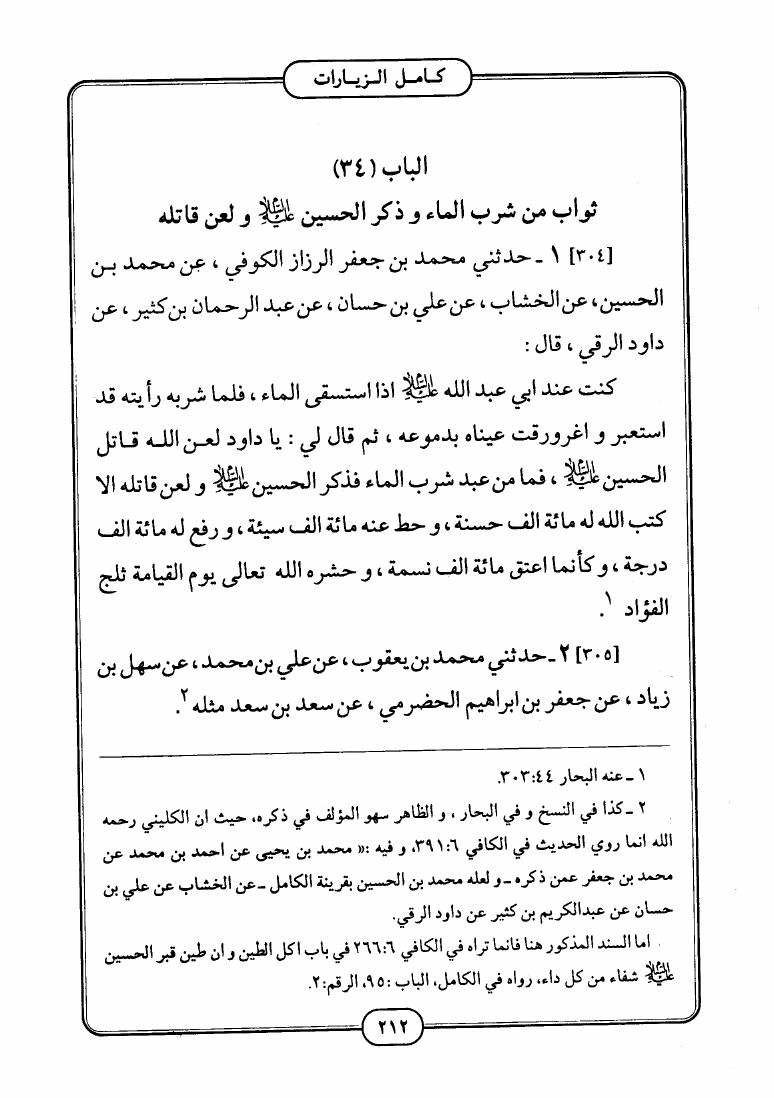 كـامـل الـزيـارات
الباب (٣٤)
ثواب من شرب الماء و ذكر الحسين عليه السلام و لعن قاتله
[٣٠٤] ١ ـ حدثني محمد بن جعفر الرزاز الكوفي ، عن محمد بـن
الحسين، عن الخشاب ، عن علي بن حسان ، عن عبد الرحمان بن كثير ، عن
داود الرقي ، قال :
كنت عند ابي عبد الله عليه السلام اذا استسقى الماء ، فلما شربه رأيته قد
استعبر و اغرورقت عيناه بدموعه ، ثم قال لي : يا داود لعـن اللـه قـاتل
الحسين عليه السلام ، فما من عبد شرب الماء فذكر الحسين عليه السلام و لعن قاتله الا
كتب الله له مائة الف حسنة ، و حط عنه مائة الف سيئة ، و رفع له مائة الف
درجة ، و كأنما اعتق مائة الف نسمة ، و حشره الله تعالى يوم القيامة ثلج
الفؤاد ١.
[٣٠٥] ٢ ـ حدثني محمد بن يعقوب ، عن علي بن محمد ، عن سهل بن
زياد ، عن جعفر بن ابراهيم الحضرمي ، عن سعد بن سعد مثله ٢.
١ ـ عنه البحار ٤٤:٣٠٣.
٢ ـ كذا في النسخ و في البحار ، و الظاهر سهو المؤلف في ذكره، حيث ان الكليني رحمه
الله انما روي الحديث في الكافي ٦:٣٩١، و فيه :« محمد بن يحيى عن احمد بن محمد عن
محمد بن جعفر عمن ذكره ـ و لعله محمد بن الحسين بقرينة الكامل ـ عن الخشاب عن علي بن
حسان عن عبدالكريم بن كثير عن داود الرقي.
اما السند المذكور هنا فانما تراه في الكافي ٦:٢٦٦ في باب اكل الطين و ان طين قبر الحسين
عليه السلام شفاء من كل داء، رواه في الكامل، الباب :٩٥، الرقم:٢.
٢١٢